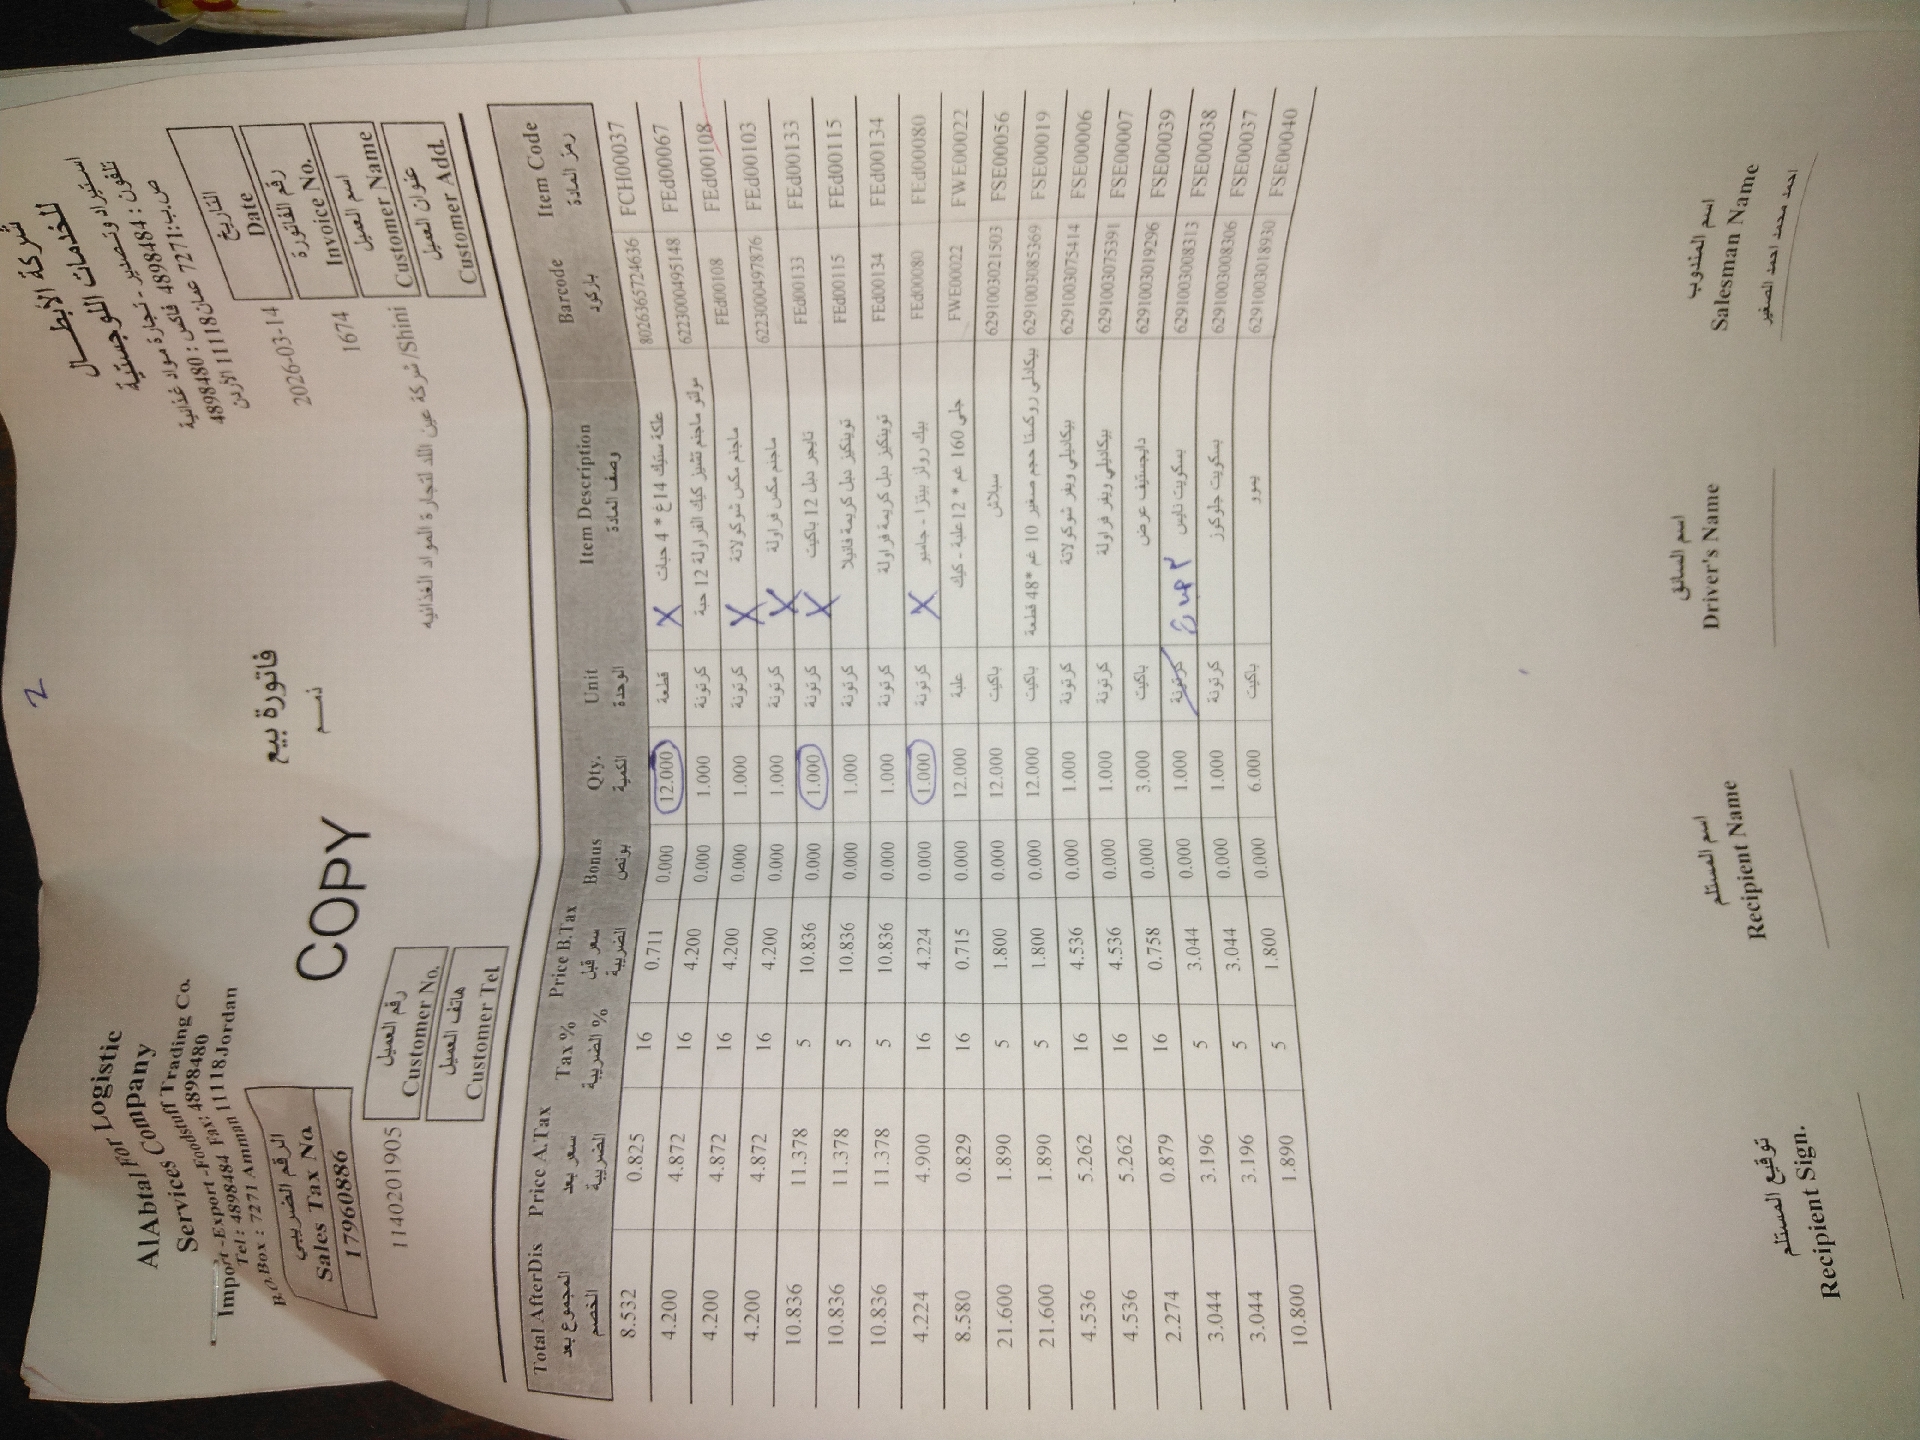 2
AlAbtal For Logistic
Services Company
Import -Export -Foodstuff Trading Co.
Tel : 4898484 Fax: 4898480
P.O.Box : 7271 Amman 11118 Jordan
شركة الأبطال
للخدمات اللوجستية
استيراد وتصدير - تجارة مواد غذائية
تلفون : 4898484 فاكس : 4898480
ص.ب:7271 عمان 11118 الأردن
الرقم الضريبي
Sales Tax No.
17960886
فاتورة بيع
ذمم
COPY
التاريخ
Date
2026-03-14
رقم الفاتورة
Invoice No.
1674
اسم العميل
Customer Name
شركة عين اللد لتجارة المواد الغذائيه /Shini
عنوان العميل
Customer Add.
رقم العميل
Customer No.
1140201905
هاتف العميل
Customer Tel.
Total AfterDis Price A.Tax Tax % Price B.Tax Bonus Qty. Unit Item Description Barcode Item Code
المجموع بعد الخصم سعر بعد الضريبة الضريبة % سعر قبل الضريبة بونص الكمية الوحدة وصف المادة باركود رمز المادة
8.532 0.825 16 0.711 0.000 12.000 قطعة X علكة ستيك 14غ * 4 حبات 8026365724636 FCH00037
4.200 4.872 16 4.200 0.000 1.000 كرتونة مولتو ماجنم تشيز كيك الفراولة 12 حبة 6223000495148 FEd00067
4.200 4.872 16 4.200 0.000 1.000 كرتونة X ماجنم مكس شوكولاتة FEd00108 FEd00108
4.200 4.872 16 4.200 0.000 1.000 كرتونة X ماجنم مكس فراولة 6223000497876 FEd00103
10.836 11.378 5 10.836 0.000 1.000 كرتونة X تايجر دبل 12 باكيت FEd00133 FEd00133
10.836 11.378 5 10.836 0.000 1.000 كرتونة توينكيز دبل كريمة فانيلا FEd00115 FEd00115
10.836 11.378 5 10.836 0.000 1.000 كرتونة توينكيز دبل كريمة فراولة FEd00134 FEd00134
4.224 4.900 16 4.224 0.000 1.000 كرتونة X بيك رولز بيتزا - جامبو FEd00080 FEd00080
8.580 0.829 16 0.715 0.000 12.000 علبة جلي 160 غم * 12 علبة - كيك FWE00022 FWE00022
21.600 1.890 5 1.800 0.000 12.000 باكيت سبلاش 6291003021503 FSE00056
21.600 1.890 5 1.800 0.000 12.000 باكيت بيكاديلي روكستا حجم صغير 10 غم *48 قطعة 6291003085369 FSE00019
4.536 5.262 16 4.536 0.000 1.000 كرتونة بيكاديلي ويفر شوكولاتة 6291003075414 FSE00006
4.536 5.262 16 4.536 0.000 1.000 كرتونة بيكاديلي ويفر فراولة 6291003075391 FSE00007
2.274 0.879 16 0.758 0.000 3.000 باكيت دايجستيف عرض 6291003019296 FSE00039
3.044 3.196 5 3.044 0.000 1.000 كرتونة بسكويت نايس 6291003008313 FSE00038
3.044 3.196 5 3.044 0.000 1.000 كرتونة بسكويت جلوكوز 6291003008306 FSE00037
10.800 1.890 5 1.800 0.000 6.000 باكيت يمور 6291003018930 FSE00040
توقيع المستلم
Recipient Sign.
اسم المستلم
Recipient Name
اسم السائق
Driver's Name
اسم المندوب
Salesman Name
احمد محمد احمد الصغير